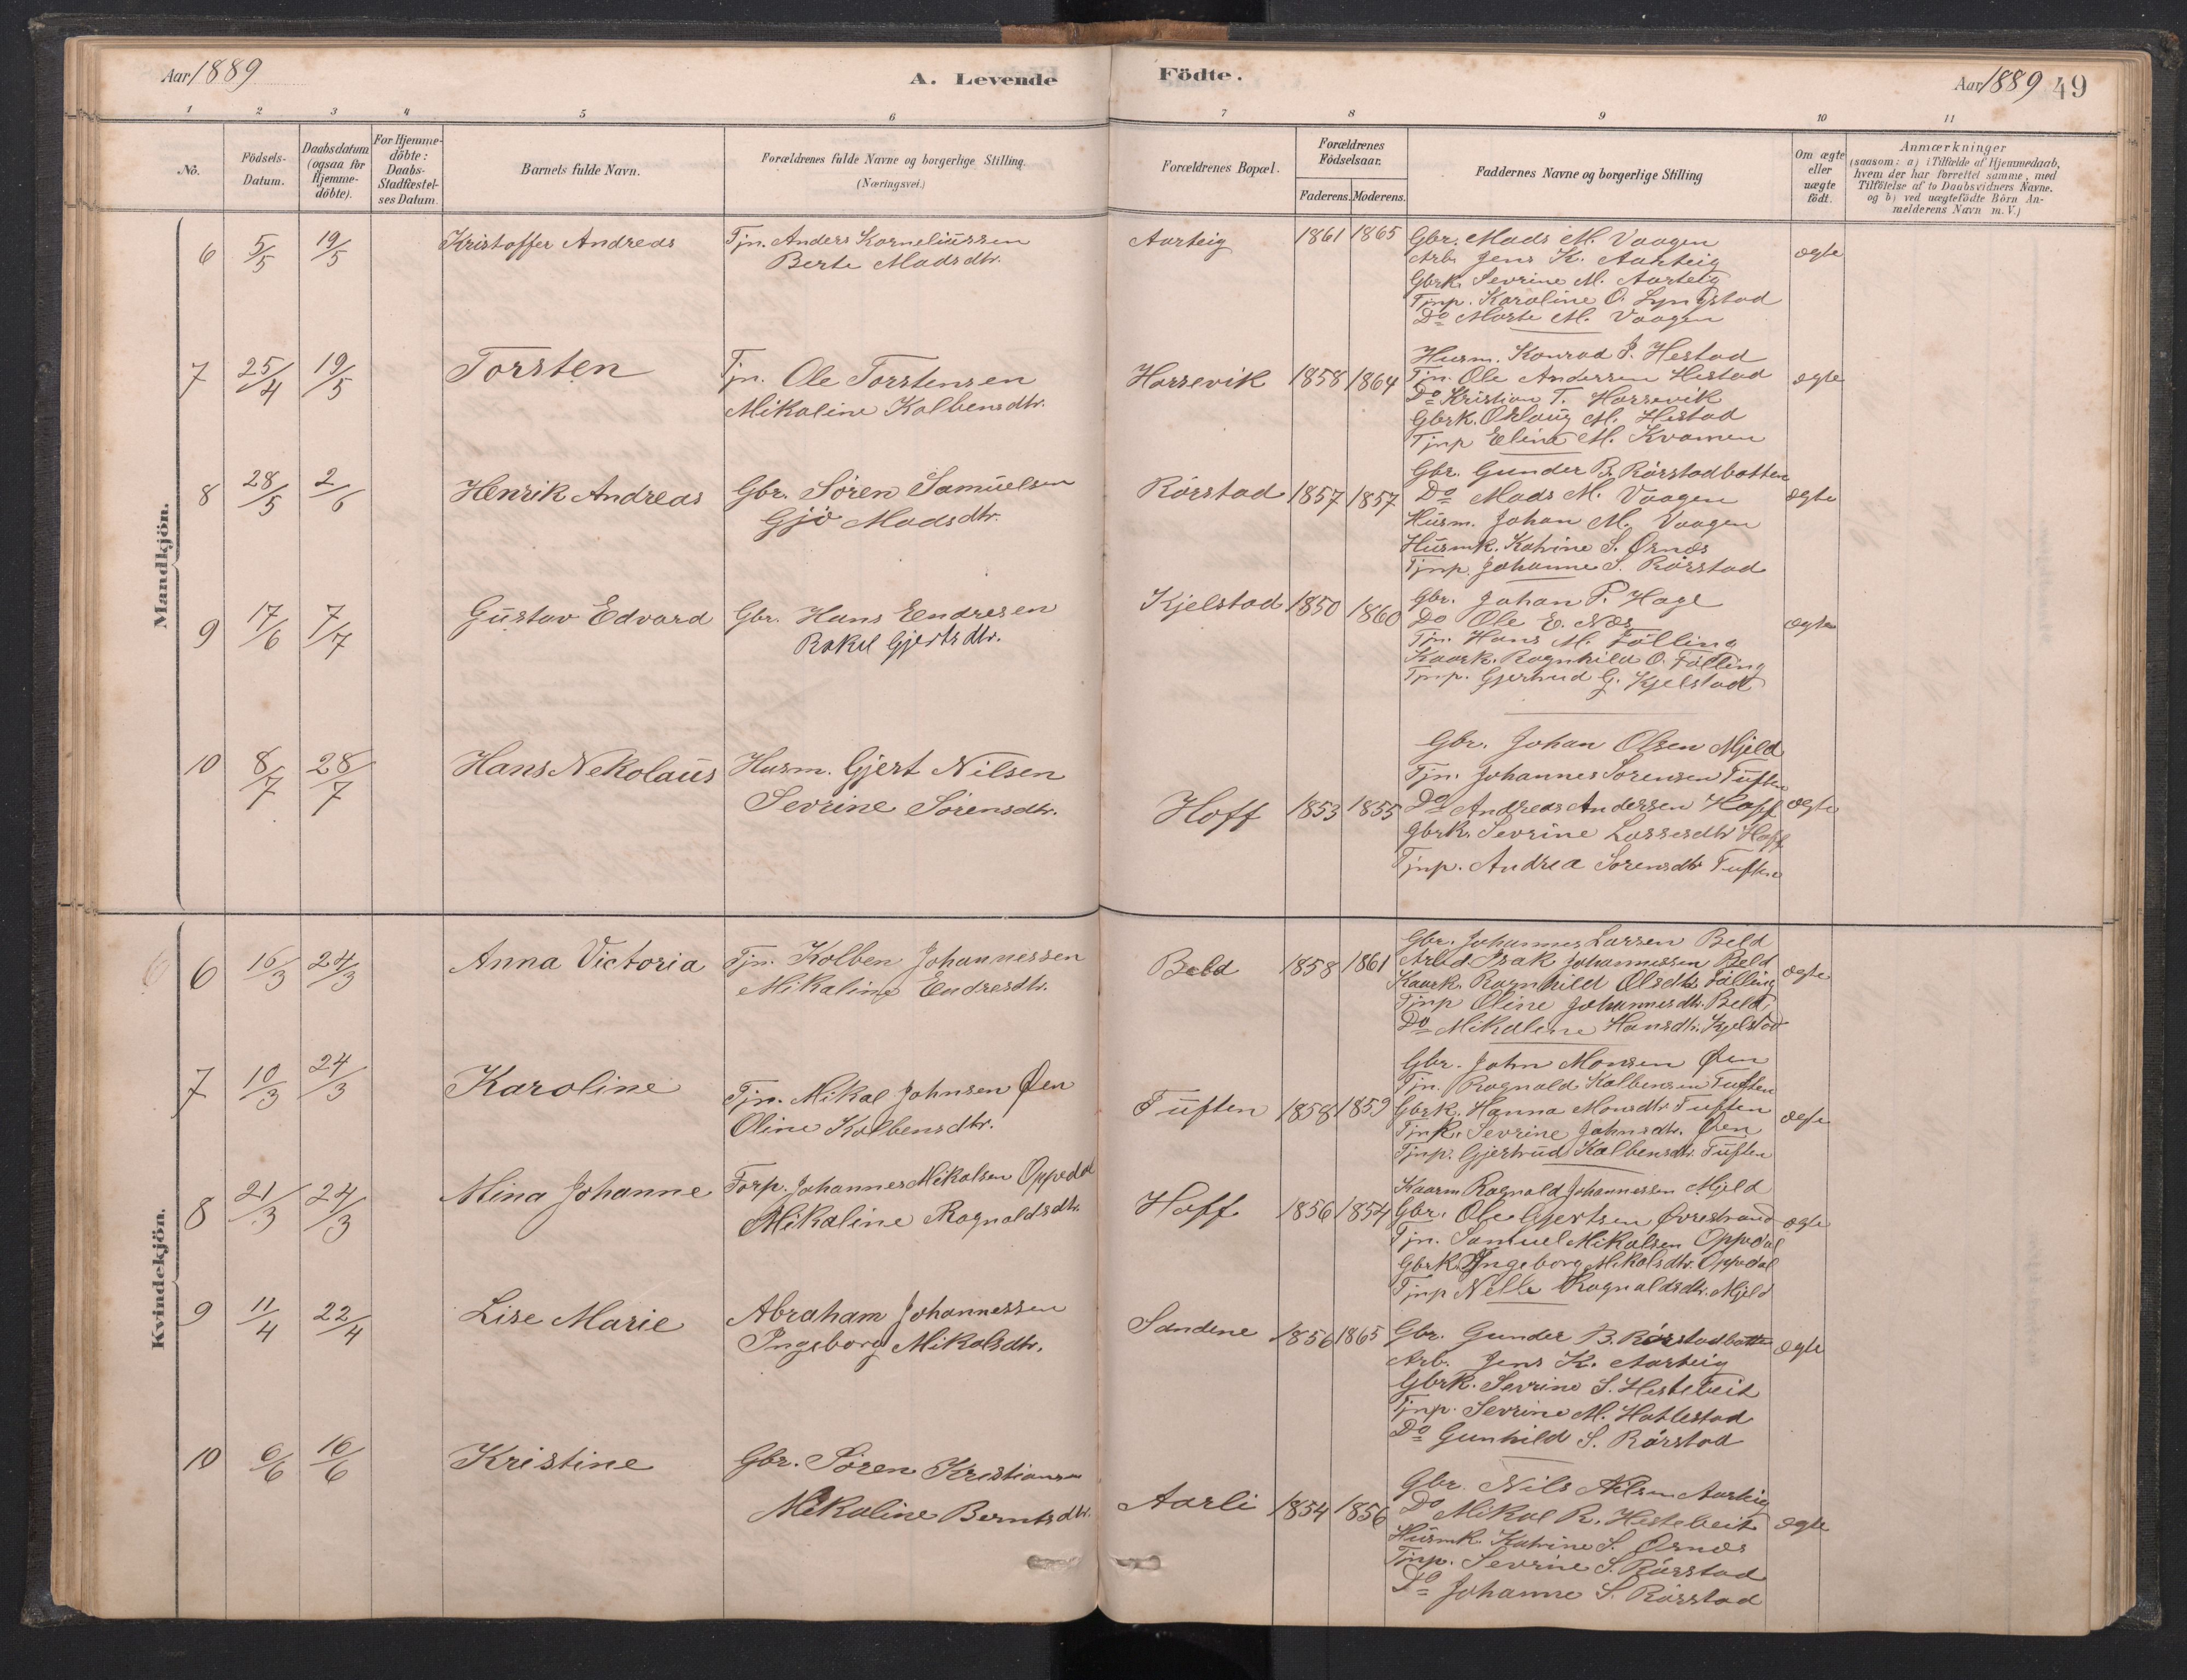 Aar 1889
A. Levende
Födte.
Aar 1889 49
1 2 3 4 5 6 7 8 9 10 11
No.
Födsels-Datum.
Daabsdatum (ogsaa for Hjemme-döbte).
For Hjemme-döbte: Daabs-Stadfæstel-ses Datum.
Barnets fulde Navn.
Forældrenes fulde Navne og borgerlige Stilling. (Næringsvei.)
Forældrenes Bopæl.
Forældrenes Födselsaar.
Faderens. Moderens.
Faddernes Navne og borgerlige Stilling
Om ægte eller uægte födt.
Anmærkninger
(saasom: a) i Tilfælde af Hjemmedaab,
hvem der har forrettet samme, med
Tilföielse af to Daabsvidners Navne.
og b) ved uægtefödte Börn An-
melderens Navn m. V.)
Mandkjön.
6 5/5 19/5 Kristoffer Andreas Tjn. Anders Korneliussen Aarteig 1861 1865 Gbr. Mads M. Vaagen ægte
Berte Madsdtr. Arb. Jens K. Aarteig
Gbrk. Sevrine M. Aarteig
Tjnp. Karoline O. Lyngstad
Do Marte M. Vaagen
7 25/4 19/5 Torsten Tjn. Ole Torstensen Horsevik 1858 1864 Husm. Konrad J. Hestad ægte
Mikaline Kolbensdtr. Tjn. Ole Andersen Hestad
Do Kristian T. Horsevik
Gbrk. Oslaug M. Hestad
Tjnp Eline M. Kvamen
8 28/5 2/6 Henrik Andreas Gbr. Sören Samuelsen Rörstad 1857 1857 Gbr. Gunder B. Rörstadbotten ægte
Gjö Madsdtr. Do Mads M. Vaagen
Husm. Johan M. Vaagen
Husmk. Katrine S. Ornæs
Tjnp. Johanne S. Rörstad
9 17/6 7/7 Gustav Edvard Gbr. Hans Endresen Kjelstad 1850 1860 Gbr. Johan P. Hage ægte
Rakel Gjertsdtr. Do Ole E. Næs
Tjn. Hans M. Fölling
Kaark. Ragnhild O. Fölling
Tjnp. Gjertrud G. Kjelstad
10 8/7 28/7 Hans Nekolaus Husm. Gjert Nilsen Hoff 1853 1855 Gbr. Johan Olsen Mjeld ægte
Sevrine Sörensdtr. Tjn. Johannes Sorensen Tuften
Do Andreas Andersen Hoff
Gbrk. Sevrine Lassesdtr Hoff
Tjnp. Andrea Sorensdtr Tuften
Kvindekjön.
6 6 16/3 24/3 Anna Victoria Tjn. Kolben Johannessen Beld 1858 1861 Gbr. Johannes Larsen Beld ægte
Mikaline Endresdtr. Arbd Isak Johannessen Beld
Kaark. Ragnhild Olsdtr. Fölling
Tjnp Oline Johannesdtr. Beld
Do Mikalene Hansdtr. Kjelstad
7 10/3 24/3 Karoline Tjn. Mikal Johnsen Øen Tuften 1858 1859 Gbr. John Monsen Øen ægte
Oline Kolbensdtr. Tjn. Ragnald Kolbensen Tuften
Gbrk. Hanna Monsdtr Tuften
Tjnk. Sevrine Johnsdtr. Øen
Tjnp. Gjertrud Kolbensdtr. Tuften
8 21/3 24/3 Mina Johanne Forp. Johannes Mikalsen Oppedal Hoff 1856 1854 Kaarm Ragnald Johannessen Mjeld ægte
Mikaline Ragnaldsdtr. Gbr. Ole Gjertsen Øvrestrand
Tjn. Samuel Mikalsen Oppedal
Gbrk. Ingeborg Mikalsdtr. Oppedal
Tjnp Nelle Ragnaldsdtr. Mjeld
9 11/4 22/4 Lise Marie Abraham Johannessen Sandene 1856 1865 Gbr. Gunder B. Rörstadbotten ægte
Ingeborg Mikalsdtr. Arb. Jens K. Aarteig
Gbrk. Sevrine S. Hestebeit
Tjnp. Sevrine M. Hatlestad
Do Gunhild S. Rörstad
10 6/6 16/6 Kristine Gbr. Sören Kristiansen Aarli 1854 1856 Gbr. Nils Nilsen Aarteig ægte
Mikaline Berntsdtr. Do Mikal R. Hestebeit
Husmk. Katrine S. Ornæs
Tjnp. Sevrine S. Rörstad
Do Johanne S. Rörstad